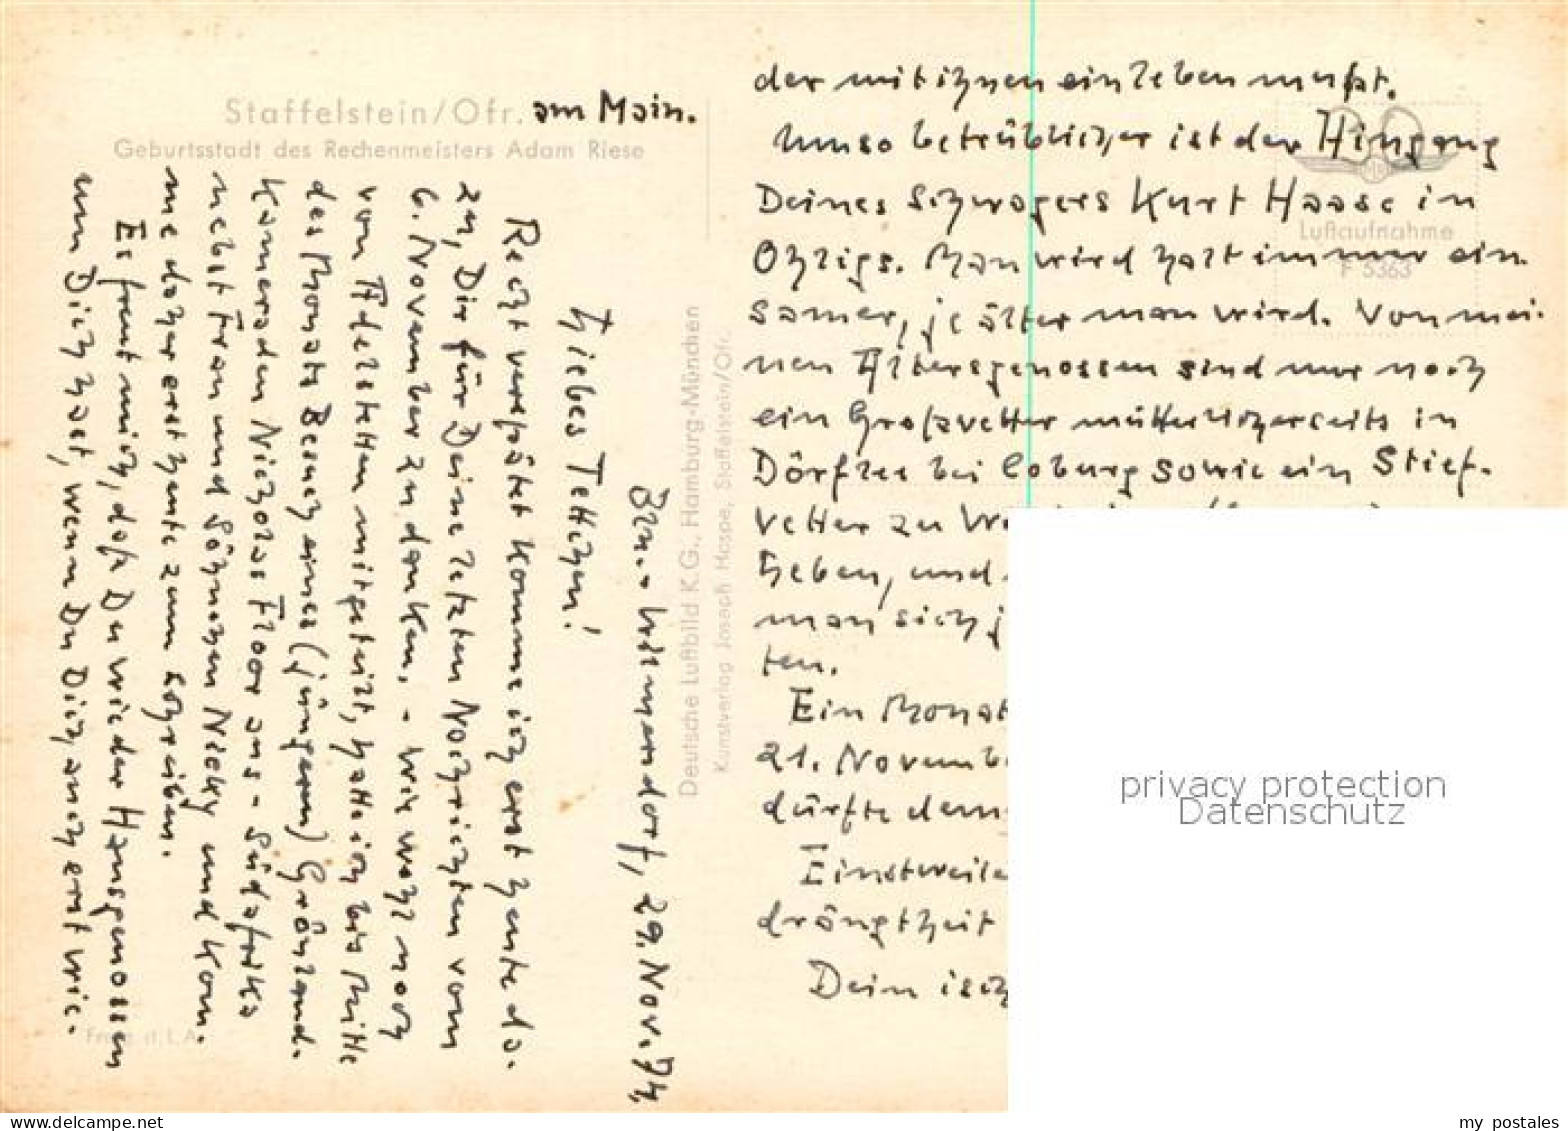 Staffelstein/Ofr. am Main.
Geburtsstadt des Rechenmeisters Adam Riese
Bln.-Wilmersdorf, 29. Nov. 74,
Liebes Tettchen!
Recht verspätet komme ich erst heute da-
zu, Dir für Deine letzten Nachrichten vom
6. November zu danken. - Wie wohl noch
von Adelstetten mitgeteilt, hatte ich bis Mitte
des Monats Besuch eines (jüngeren) Grönland-
kameraden Nicholas Floor aus - Südafrika
nebst Frau und Söhnchen Nicky und kom-
me daher erst heute zum Schreiben.
Es freut mich, daß Du wieder Hausgenossen
um Dich hast, wenn Du Dich auch erst wie-
der mit ihnen einleben mußt.
Umso betrüblicher ist der Hingang
Deines Schwagers Kurt Haase in
Ohligs. Man wird halt immer ein-
samer, je älter man wird. Von mei-
nen Altersgenossen sind nur noch
ein Großvetter mütterlicherseits in
Dörfles bei Coburg sowie ein Stief-
vetter zu
Leben, und
man sich j
ten.
Ein Monat
21. Novemb
dürfte dem
Einstweile
drängtheit
Dein ich
Deutsche Luftbild K.G., Hamburg-München
Kunstverlag Josef Haspe, Staffelstein/Ofr.
Luftaufnahme
F 5363
Freig. d. L.A.
privacy protection
Datenschutz
my postales